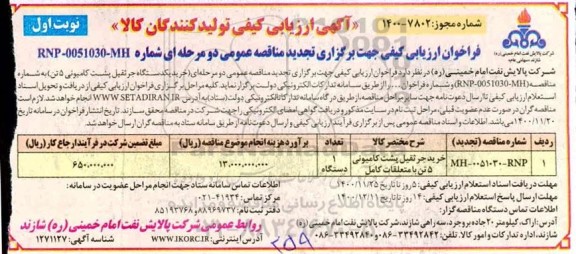 شماره مجوز: ۱۴۰۰-۷۸۰۲
«آگهی ارزیابی کیفی تولیدکنندگان کالا»
نوبت اول
شرکت پالایش نفت امام خمینی (ره) شازند
فراخوان ارزیابی کیفی جهت برگزاری تجدید مناقصه عمومی دو مرحله ای شماره RNP-0051030-MH
شرکت پالایش نفت امام خمینی (ره) در نظر دارد فراخوان ارزیابی کیفی جهت برگزاری تجدید مناقصه عمومی دو مرحله‌ای (خرید یک دستگاه جرثقیل پشت کامیونی ۵ تن) به شماره
مناقصه (RNP-0051030-MH) و شماره فراخوان را از طریق سامانه تدارکات الکترونیکی دولت برگزار نماید. کلیه مراحل برگزاری فراخوان ارزیابی کیفی از دریافت و تحویل اسناد
استعلام ارزیابی کیفی تا ارسال دعوت‌نامه جهت سایر مراحل مناقصه، از طریق درگاه سامانه تدارکات الکترونیکی دولت (ستاد) به آدرس WWW.SETADIRAN.IR انجام خواهد شد. لازم است
مناقصه گران در صورت عدم عضویت قبلی، مراحل ثبت نام در سایت مذکور و دریافت گواهی امضای الکترونیکی را جهت شرکت در مناقصه محقق سازند. تاریخ انتشار فراخوان در سامانه مورخ
۱۴۰۰/۱۱/۲۰ می‌باشد. اطلاعات و اسناد مناقصه عمومی پس از برگزاری فرآیند ارزیابی کیفی و ارسال دعوت نامه از طریق سامانه ستاد به مناقصه گران ارسال خواهد شد.
ردیف شماره مناقصه (تجدید) شرح مختصر کالا تعداد برآورد هزینه انجام موضوع مناقصه (ریال) مبلغ تضمین شرکت در فرآیند ارجاع کار (ریال)
۱ MH-۰۰۵۱۰۳۰-RNP خرید جرثقیل پشت کامیونی ۵ تن با متعلقات کامل ۱ دستگاه ۱۳,۰۰۰,۰۰۰,۰۰۰ ۶۵۰,۰۰۰,۰۰۰
مهلت دریافت اسناد استعلام ارزیابی کیفی: ۵ روز تا ۱۴۰۰/۱۱/۲۵
مهلت ارسال پاسخ استعلام ارزیابی کیفی: ۱۴ روز تا
اطلاعات تماس سامانه ستاد جهت انجام مراحل عضویت در سامانه:
مرکز تماس: ۴۱۹۳۴-۰۲۱
دفتر ثبت نام: ۸۸۹۶۹۷۳۷ و ۸۵۱۹۳۷۶۸
اطلاعات تماس دستگاه مناقصه گزار:
آدرس: اراک، کیلومتر ۲۰ جاده بروجرد، سه راهی شازند، شرکت پالایش نفت امام خمینی (ره)
شازند، اداره تدارکات و امور کالا. تلفن: ۳۳۴۹۲۸۴۰-۰۸۶ و ۳۳۴۹۲۸۴۲-۰۸۶
روابط عمومی شرکت پالایش نفت امام خمینی (ره) شازند
آدرس اینترنتی: WWW.IKORC.IR
شناسه آگهی: ۱۲۷۱۱۲۷
۲۵۹